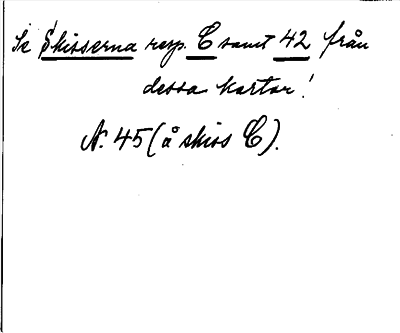 Se Skisserna resp. C samt 42 från
dessa kartor!
N. 45 (å skiss C).